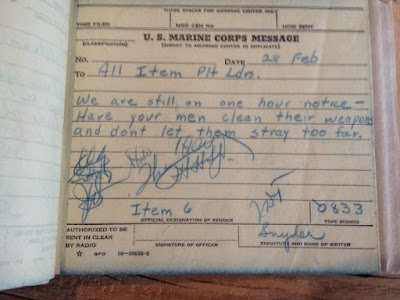 THESE SPACES FOR MESSAGE CENTER ONLY
TIME FILED MSG CEN NO. HOW SENT
U. S. MARINE CORPS MESSAGE
(CLASSIFICATION) (SUBMIT TO MESSAGE CENTER IN DUPLICATE)
No. DATE 28 Feb
To All Item Plt Ldrs.
We are still on one hour notice -
Have your men clean their weapons
and dont let them stray too far.
Item 6 0833
OFFICIAL DESIGNATION OF SENDER TIME SIGNED
AUTHORIZED TO BE
SENT IN CLEAR
BY RADIO
Snyder
SIGNATURE OF OFFICER SIGNATURE AND NAME OF WRITER
☆ GPO